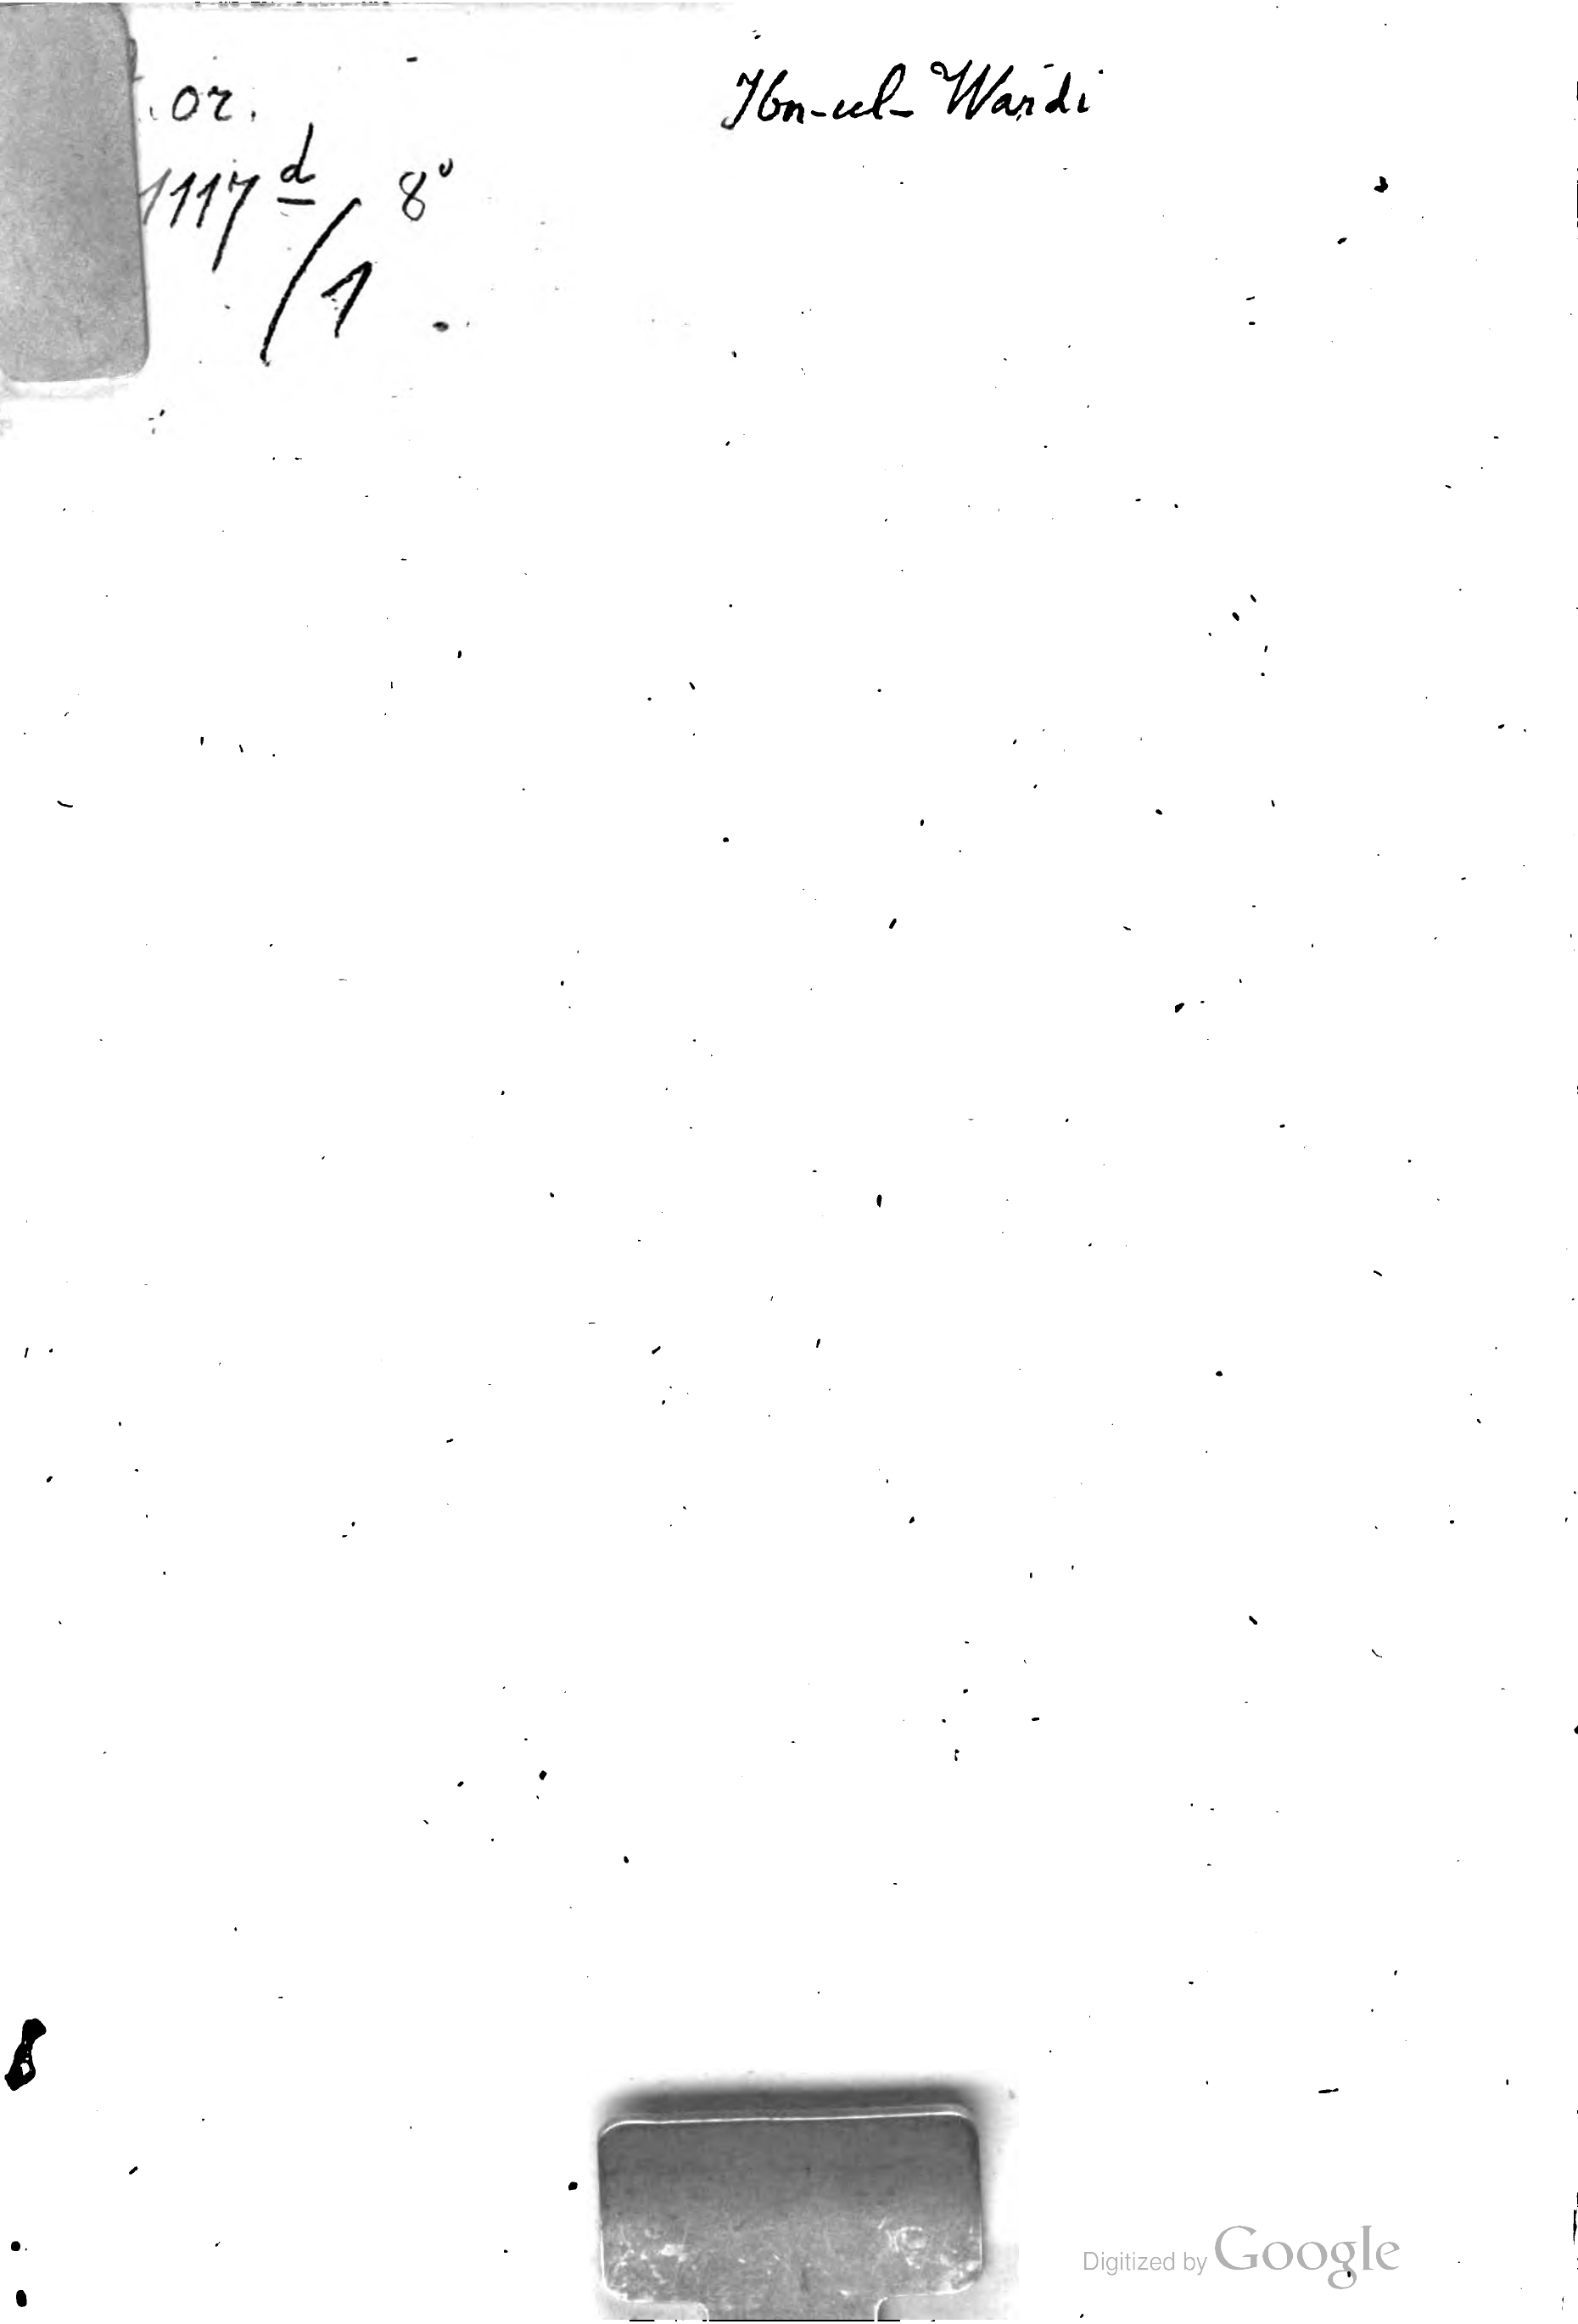 . or.
1117 d 8°
/1
Ibn-ul-Wardi
Digitized by Google